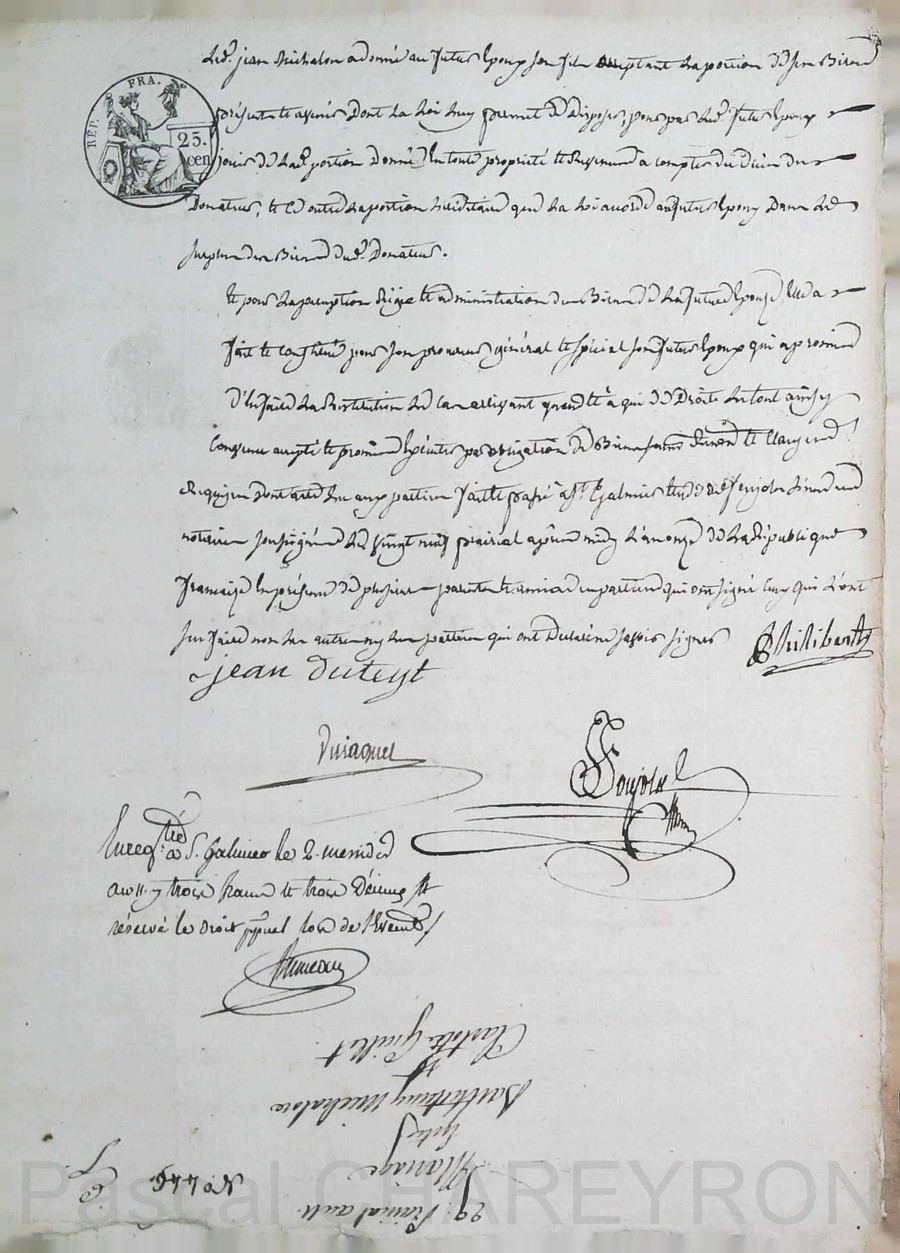 RÉP. FRA.
25 cen
Led. jean Michalon a donné au futur Epoux son fils acceptant la portion de ses Biens
présents et avenir dont la Loi luy permet de disposer, pour par led. futur Epoux
jouir de lad. portion donnée en toute propriété et à compter du décès du
Donateur, et ce outre la portion que la Loi accorde au futur Epoux dans le
surplus des Biens dud. Donateur.
Et pour la perception régie et administration des Biens de la future Epouse elle a
fait et constitué pour son procureur général et spécial son futur Epoux qui a promis
d'en faire la Restitution le cas arrivant quand et à qui de Droit. Le tout ainsy
convenu accepté et promis Exécuter par obligation de Biens
Requises dont acte lu aux parties fait et passé à St. Galmier
notaire soussigné le vingt neuf prairial après midy L'an onze de la République
française En présence de plusieurs parents et amis des parties qui ont signé ceux qui L'ont
sçu faire non les autres ny les parties qui ont déclaré ne sçavoir signer
Philibert
jean duteyt
Duraquet
Foujols
Nre
Enregtré à St. Galmier le 2. messidor
an 11. y trois francs et trois décimes
réservé le droit ppnel lors de l'Evént.
29. Prairial an 11.
Mariage
Entre
Barthélemy Michalon
Et
Clarlotte Guillot
No 446
Pascal CHAREYRON